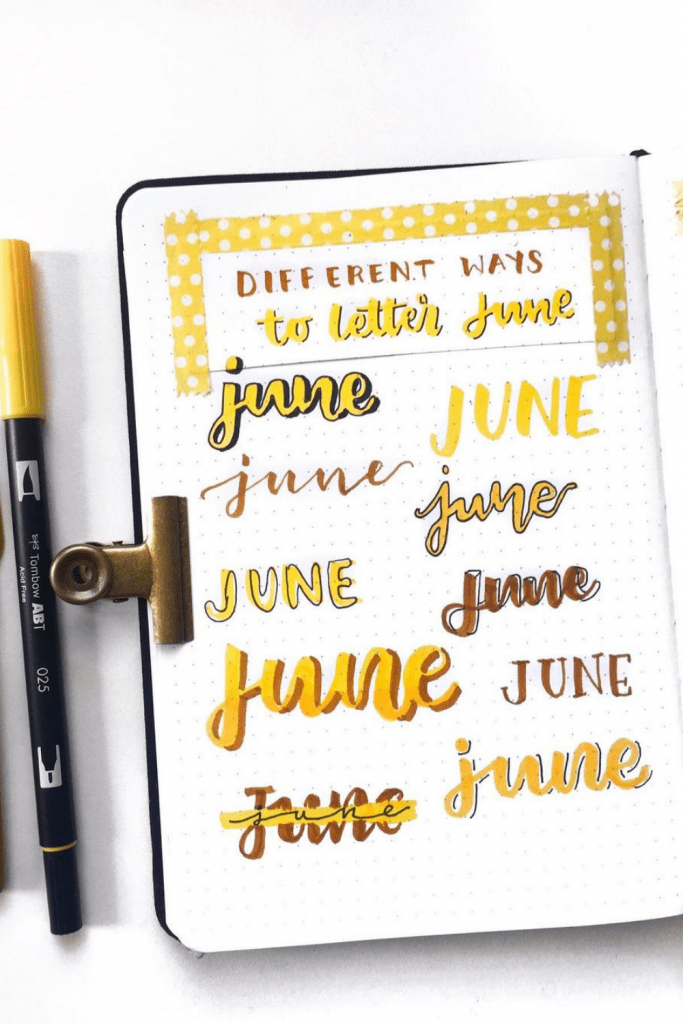 DIFFERENT WAYS
to letter june
june
JUNE
june
june
JUNE
june
june
JUNE
june
june
june
Tombow ABT
Acid Free
025